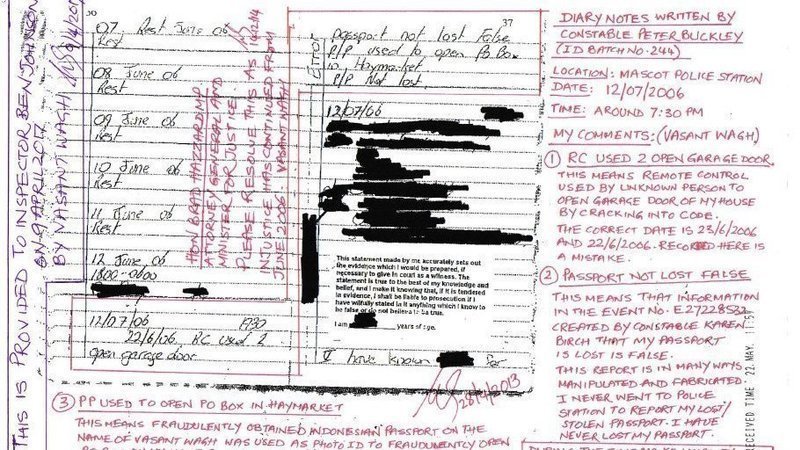 THIS IS PROVIDED TO INSPECTOR BEN JOHNSON
ON 9 APRIL 2017
BY VASANT WAGH
30
07 June 06
Rest
08 June 06
Rest
09 June 06
Rest
10 June 06
Rest
11 June 06
Rest
12 June 06
1800-0600
12/07/06 1930
22/6/06. RC used 2
open garage door
HON BRAD HAZZARD MP
ATTORNEY GENERAL AND
MINISTER FOR JUSTICE
PLEASE RESOLVE THIS AS
INJUSTICE HAS CONTINUED FROM
JUNE 2006. VASANT WAGH
37
Passport not last False
P/P used to open Po Box
in Haymarket
P/P Not lost
12/07/06
This statement made by me accurately sets out
the evidence which I would be prepared, if
necessary to give in court as a witness. The
statement is true to the best of my knowledge and
belief, and I make it knowing that, if it is tendered
in evidence, I shall be liable to prosecution if I
have wilfully stated in it anything which I know to
be false or do not believe to be true.
I am years of age.
I have known for
28/4/2013
DIARY NOTES WRITTEN BY
CONSTABLE PETER BUCKLEY
(ID BATCH NO. 244)
LOCATION: MASCOT POLICE STATION
DATE: 12/07/2006
TIME: AROUND 7:30 PM
MY COMMENTS: (VASANT WAGH)
① RC USED 2 OPEN GARAGE DOOR.
THIS MEANS REMOTE CONTROL
USED BY UNKNOWN PERSON TO
OPEN GARAGE DOOR OF MY HOUSE
BY CRACKING INTO CODE.
THE CORRECT DATE IS 23/6/2006
AND 22/6/2006. RECORDED HERE IS
A MISTAKE.
② PASSPORT NOT LOST FALSE
THIS MEANS THAT INFORMATION
IN THE EVENT NO. E27228532
CREATED BY CONSTABLE KAREN
BIRCH THAT MY PASSPORT
IS LOST IS FALSE.
THIS REPORT IS IN MANY WAYS
MANIPULATED AND FABRICATED
I NEVER WENT TO POLICE
STATION TO REPORT MY LOST/
STOLEN PASSPORT. I HAVE
NEVER LOST MY PASSPORT.
RECEIVED TIME 22. MAY.
③ PP USED TO OPEN PO BOX IN HAYMARKET
THIS MEANS FRAUDULENTLY OBTAINED INDONESIAN PASSPORT ON THE
NAME OF VASANT WAGH WAS USED AS PHOTO ID TO FRAUDULENTLY OPEN